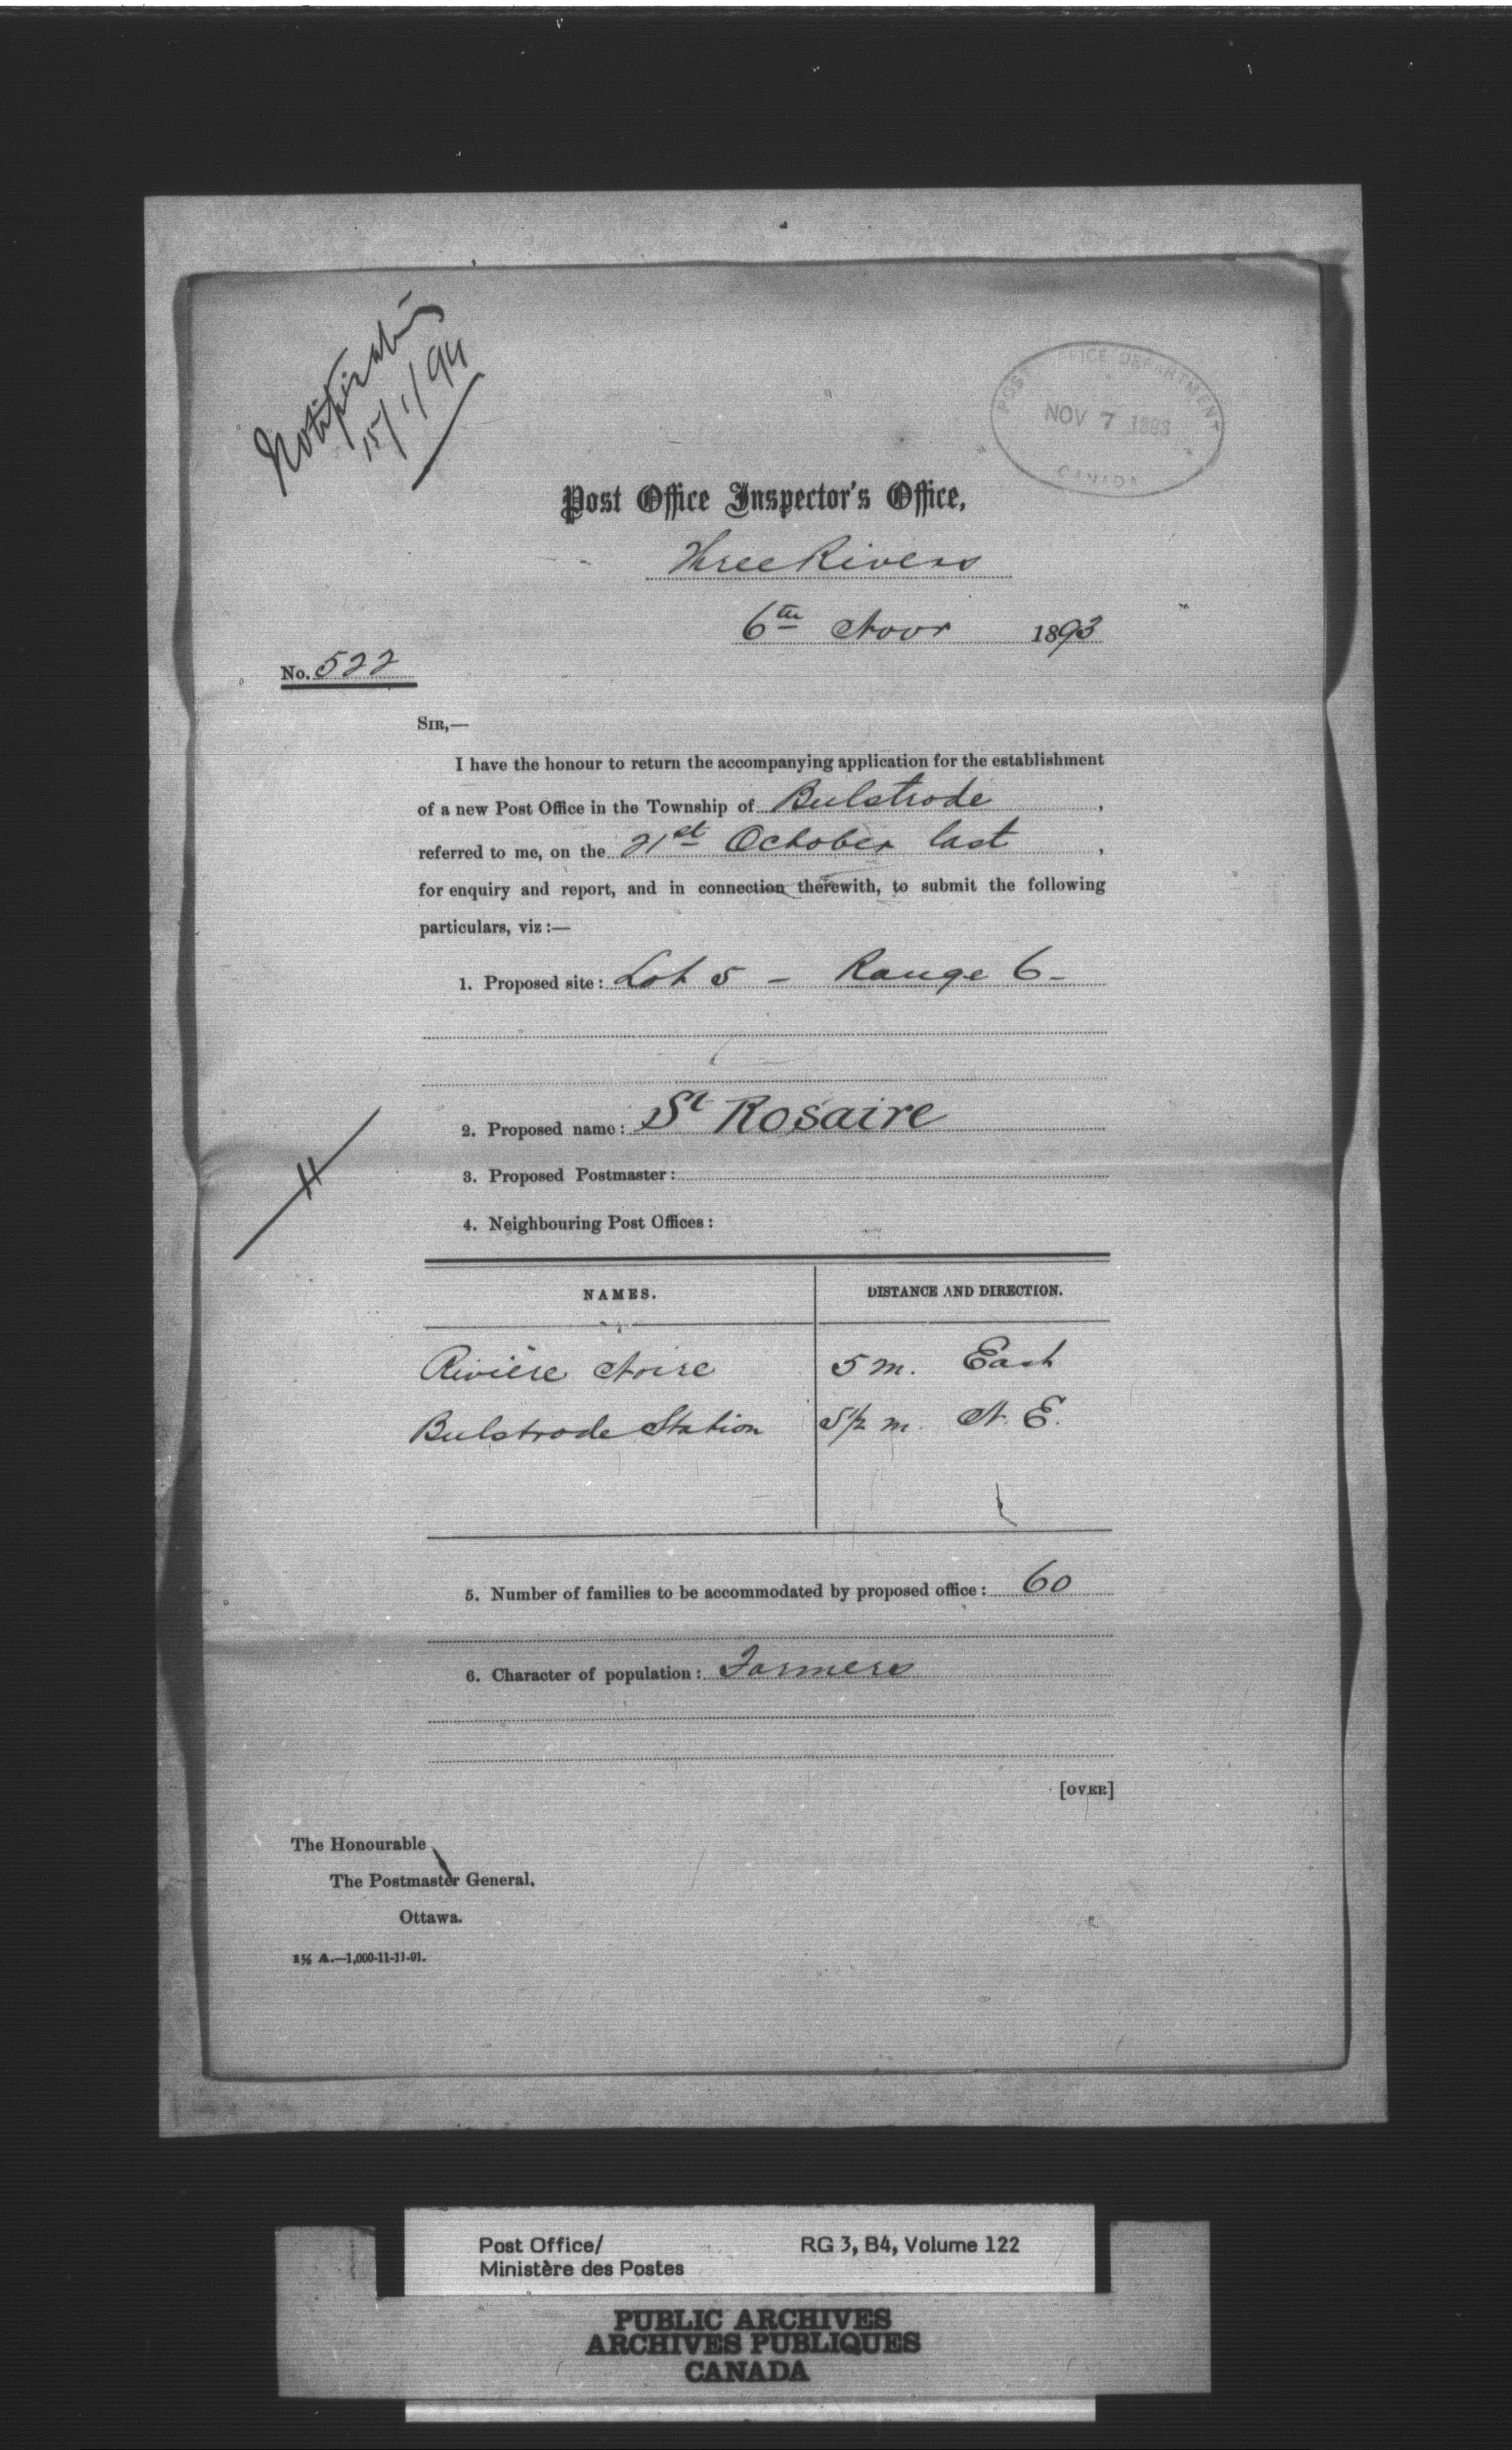 Notification
15/1/94
POST OFFICE DEPARTMENT
NOV 7 1893
CANADA
Post Office Inspector's Office,
Three Rivers
6th Novr 1893
No. 522
SIR,—
I have the honour to return the accompanying application for the establishment
of a new Post Office in the Township of Bulstrode,
referred to me, on the 21st October last,
for enquiry and report, and in connection therewith, to submit the following
particulars, viz:—
1. Proposed site: Lot 5 - Range 6-
2. Proposed name: St Rosaire
3. Proposed Postmaster:
4. Neighbouring Post Offices:
NAMES. DISTANCE AND DIRECTION.
Rivière Noire 5 m. East
Bulstrode Station 5 1/2 m. N. E.
5. Number of families to be accommodated by proposed office: 60
6. Character of population: Farmers
[OVER]
The Honourable
The Postmaster General,
Ottawa.
1½ A.—1,000-11-11-91.
Post Office/ RG 3, B4, Volume 122
Ministère des Postes
PUBLIC ARCHIVES
ARCHIVES PUBLIQUES
CANADA